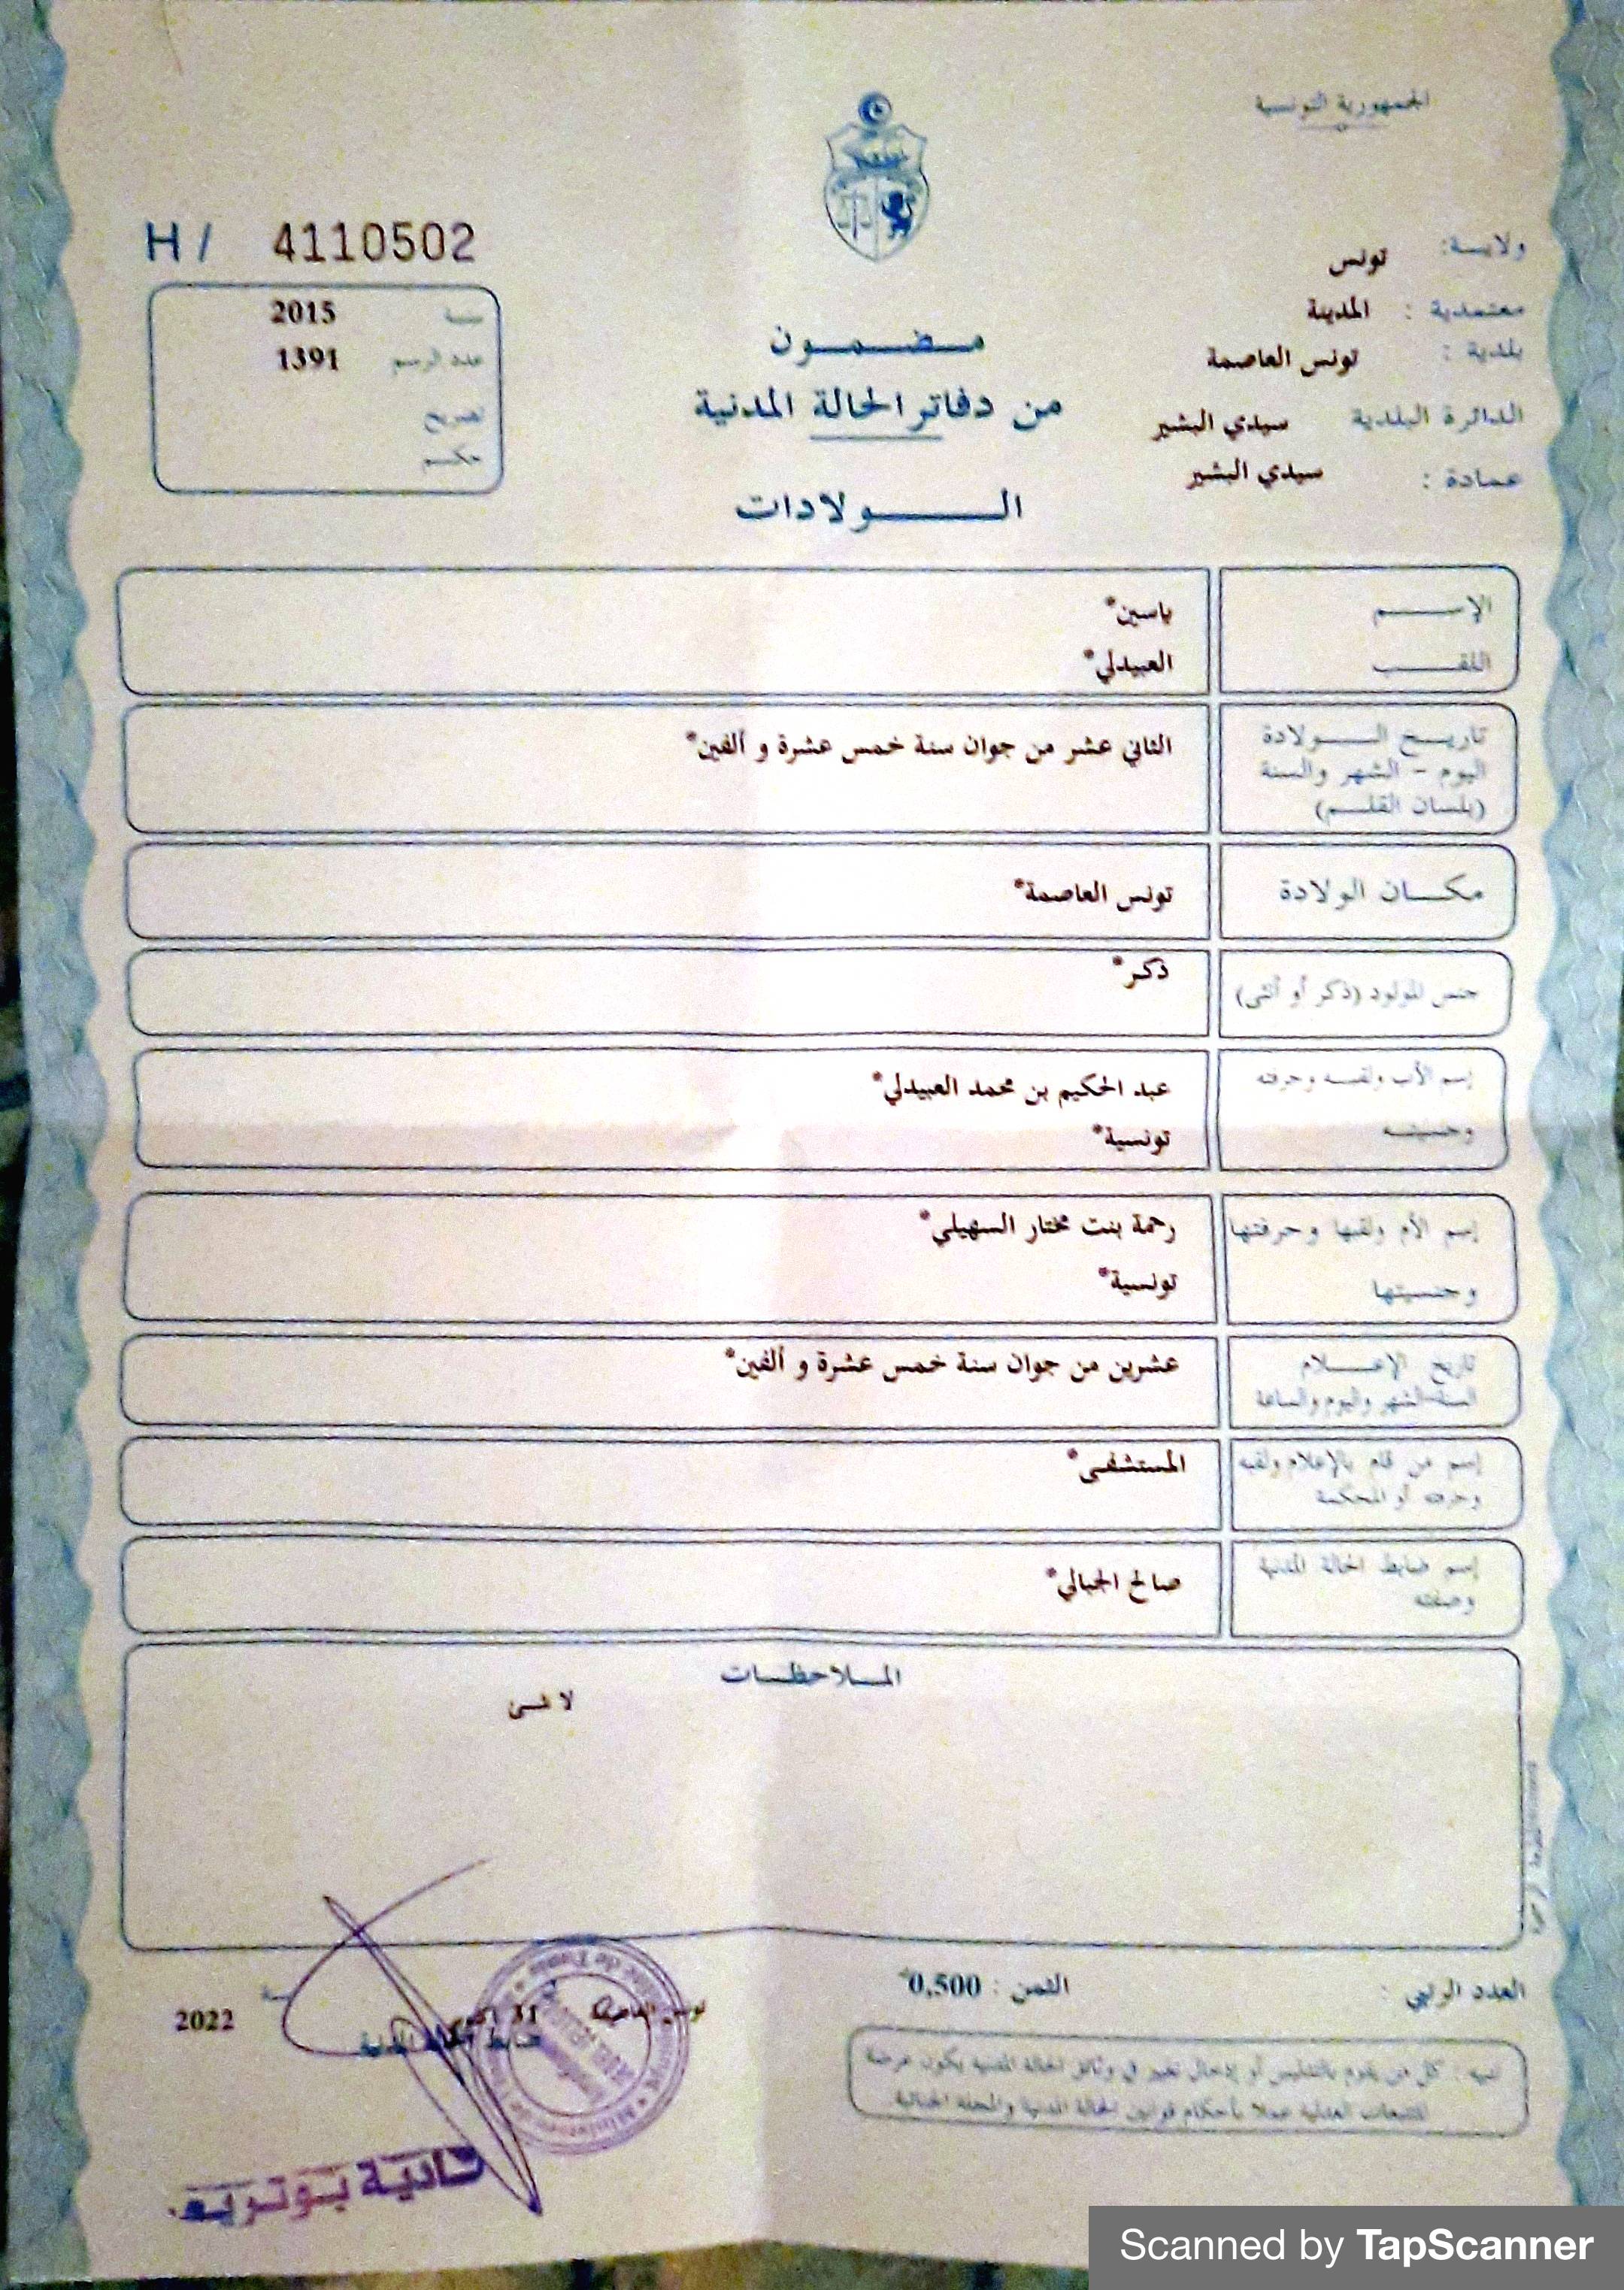 الجمهورية التونسية
ولايـــة: تونس
معتمدية : المدينة
بلدية : تونس العاصمة
الدائرة البلدية سيدي البشير
عمادة : سيدي البشير
H / 4110502
سنة 2015
عدد الرسم 1391
تصريح
حكم
مضمون
من دفاتر الحالة المدنية
الولادات
الإسم ياسين*
اللقب العبيدلي*
تاريخ الولادة
اليوم - الشهر والسنة
(بلسان القلم)
الثاني عشر من جوان سنة خمس عشرة و ألفين*
مكان الولادة تونس العاصمة*
جنس المولود (ذكر أو أنثى) ذكر*
إسم الأب ولقبه وحرفته عبد الحكيم بن محمد العبيدلي*
وجنسيته تونسية*
إسم الأم ولقبها وحرفتها رحمة بنت مختار السهيلي*
وجنسيتها تونسية*
تاريخ الإعلام
السنة-الشهر واليوم والساعة
عشرين من جوان سنة خمس عشرة و ألفين*
إسم من قام بالإعلام ولقبه
وحرفته أو المحكمة
المستشفى*
إسم ضابط الحالة المدنية
وصفته
صالح الجبالي*
الملاحظات
لا شىء
العدد الرتبي :
الثمن : 0,500
تونس العاصمة 31 2022
ضابط الحالة المدنية
تنبيه : كل من يقوم بالتدليس أو إدخال تغيير في وثائق الحالة المدنية يكون عرضة
للتتبعات العدلية عملا بأحكام قوانين الحالة المدنية والمجلة الجنائية
Scanned by TapScanner